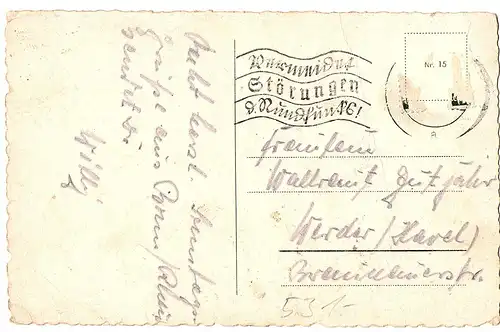 Recht herzl. Sonntags-
grüße aus Bonn/Rhein
sendet Dir
Willy
Vermeidet
Störungen
d. Rundfunks!
Nr. 15
a
Fräulein
Waltraut Gutjahr
Werder/Havel
Brandenburgerstr.
53